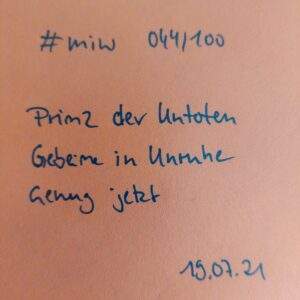 #miw 044/100
Prinz der Untoten
Gebeine in Unruhe
Genug jetzt
19.07.21